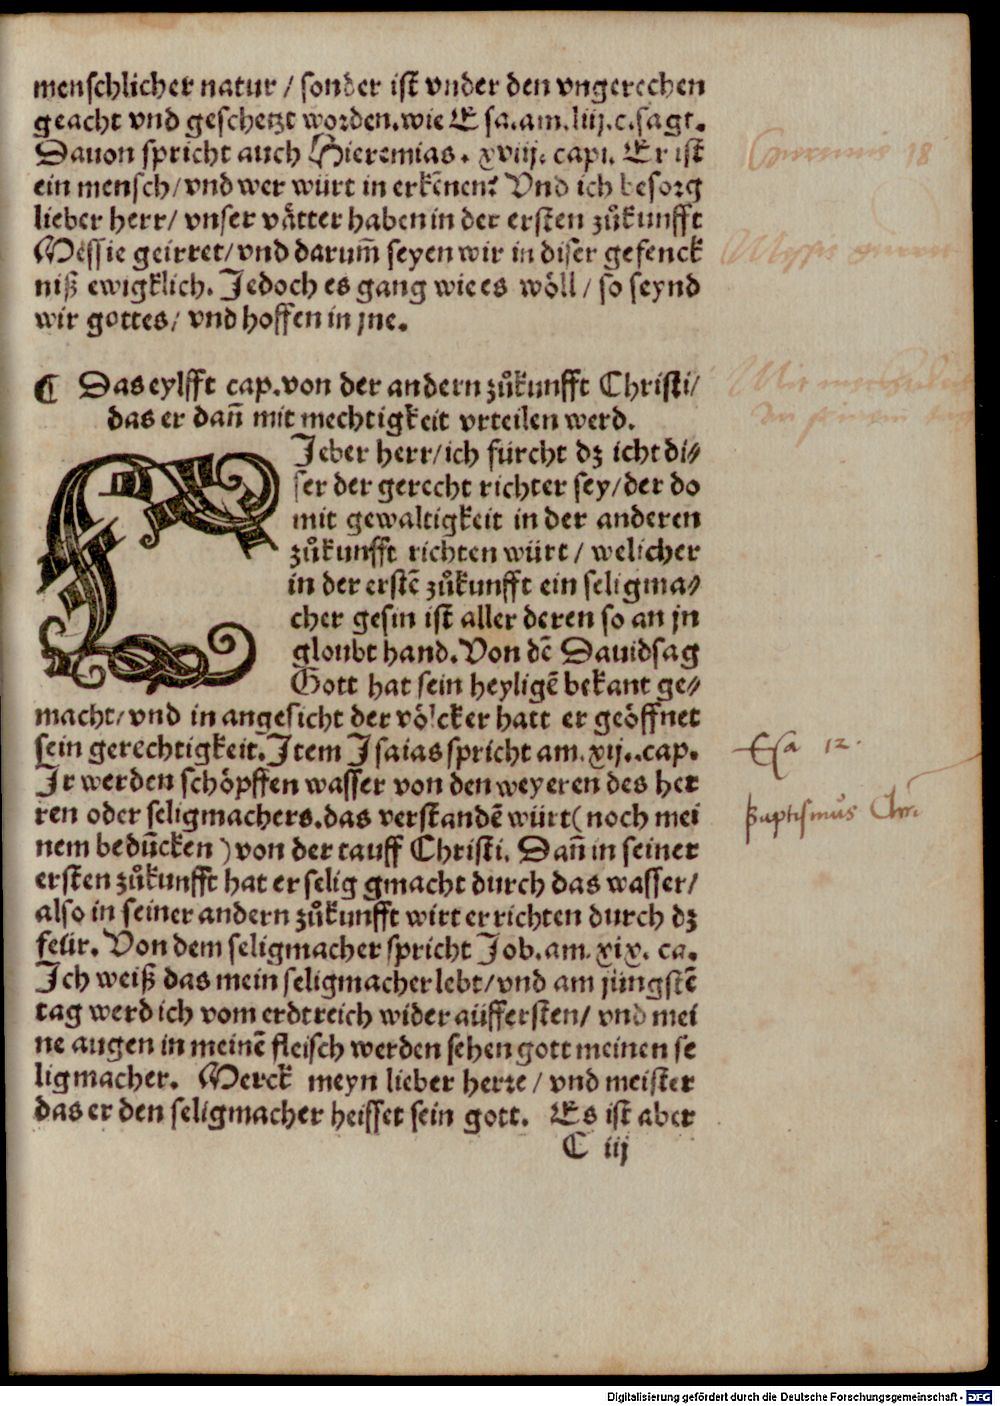 menschlicher natur / sonder ist vnder den vngerechen
geacht vnd geschetzt worden. wie Esa. am. liij. c. sagt.
Dauon spricht auch Hieremias. xviij. capi. Er ist
ein mensch / vnd wer würt in erkēnen? Vnd ich besorg
lieber herr / vnser vätter haben in der ersten zůkunfft
Messie geirret / vnd darum̄ seyen wir in diser gefenck
niß ewigklich. Jedoch es gang wie es wöll / so seynd
wir gottes / vnd hoffen in jne.
¶ Das eylfft cap. von der andern zůkunfft Christi /
das er dañ mit mechtigkeit vrteilen werd.
LJeber herr / ich fürcht dz icht di⸗
ser der gerecht richter sey / der do
mit gewaltigkeit in der anderen
zůkunfft richten würt / welicher
in der erstē zůkunfft ein seligma⸗
cher gesin ist aller deren so an jn
gloubt hand. Von dē Dauid sag
Gott hat sein heyligē bekant ge⸗
macht / vnd in angesicht der völcker hatt er geöffnet
sein gerechtigkeit. Jtem Jsaias spricht am. xij.. cap.
Jr werden schöpffen wasser von den weyeren des her
ren oder seligmachers. das verstandē würt ( noch mei
nem bedūcken ) von der tauff Christi. Dañ in seiner
ersten zůkunfft hat er selig gmacht durch das wasser /
also in seiner andern zůkunfft wirt er richten durch dz
feür. Von dem seligmacher spricht Job. am. xix. ca.
Jch weiß das mein seligmacher lebt / vnd am jüngstē
tag werd ich vom erdtreich wider aüffersten / vnd mei
ne augen in meinē fleisch werden sehen gott meinen se
ligmacher. Merck meyn lieber herre / vnd meister
das er den seligmacher heisset sein gott. Es ist aber
C iij
18
Esa 12.
Baptismus Chri
Digitalisierung gefördert durch die Deutsche Forschungsgemeinschaft - DFG